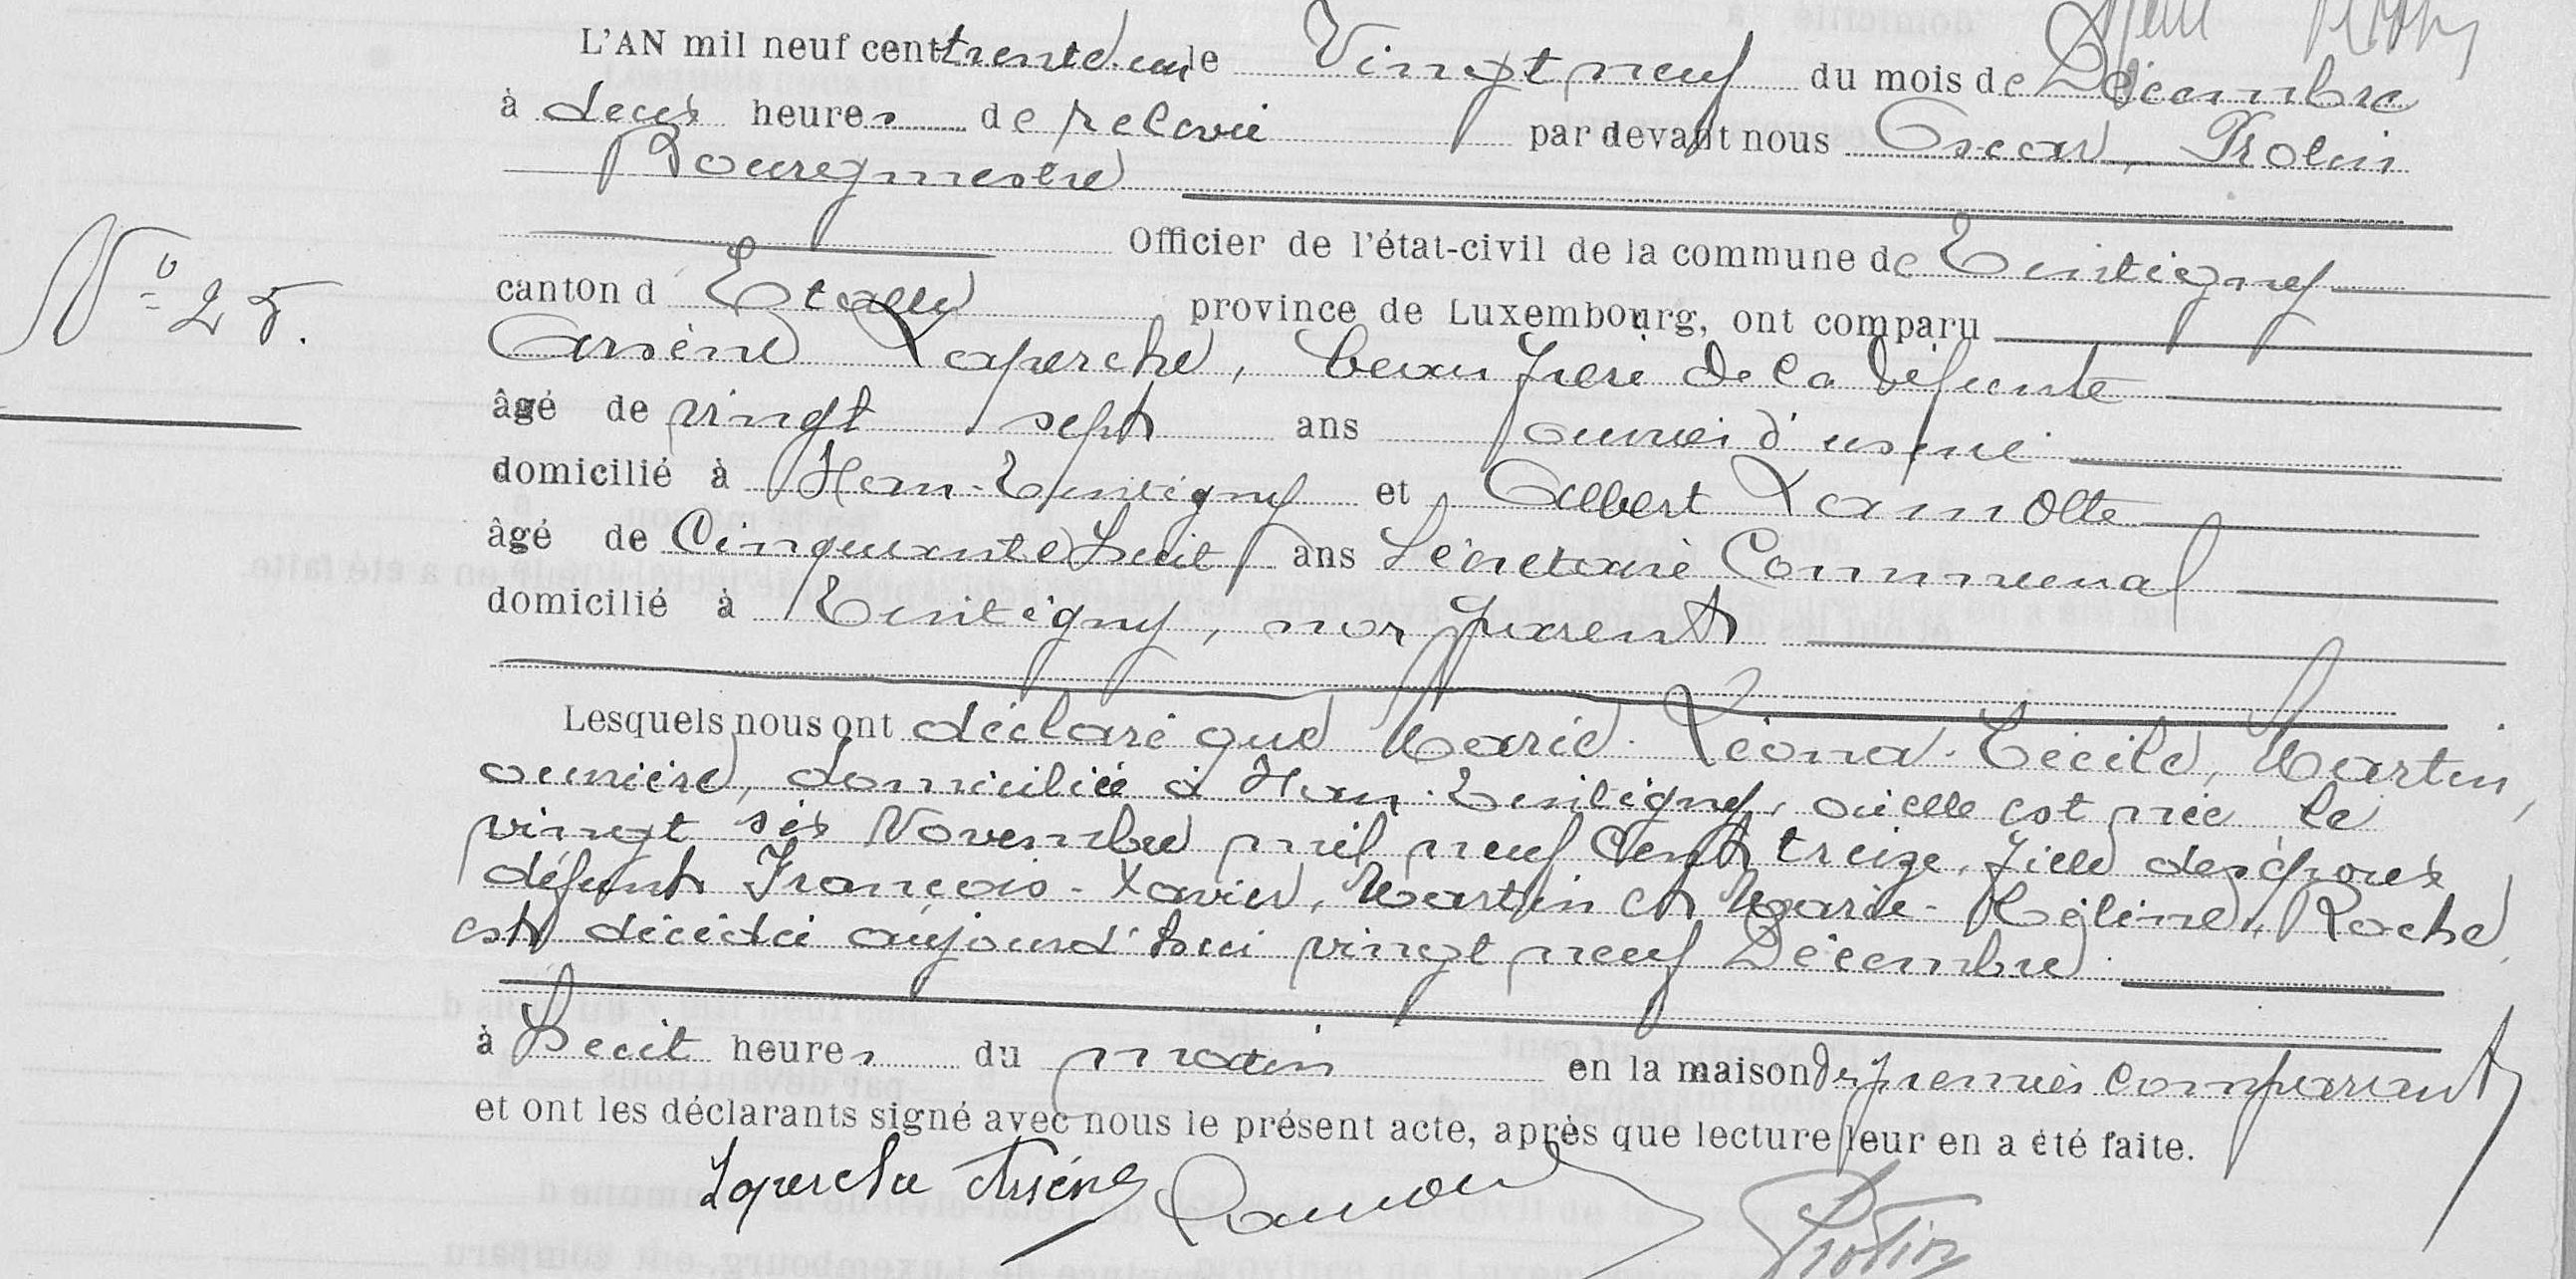 L'AN mil neuf cent trente un le Vingt neuf du mois de Décembre
à deux heures de relevée par devant nous Oscar, Protin
Bourgmestre
Officier de l'état-civil de la commune de Tintigny
N° 25.
canton d Etalle province de Luxembourg, ont comparu
Arsène Laperche, beau frère de la défunte
âgé de vingt sept ans ouvrier d'usine
domicilié à Han-Tintigny et Albert Lamotte
âgé de Cinquante huit ans Secrétaire Communal
domicilié à Tintigny, non parent
Lesquels nous ont déclaré que Marie-Léona-Cécile, Martin,
ouvrière, domiciliée à Han-Tintigny, où elle est née le
vingt six Novembre mil neuf cent treize, fille des époux
défunts François-Xavier, Martin et Marie- Roche
est décédée aujourd'hui vingt neuf Décembre
à huit heures du matin en la maison du premier comparant
et ont les déclarants signé avec nous le présent acte, après que lecture leur en a été faite.
Laperche Arsène Protin